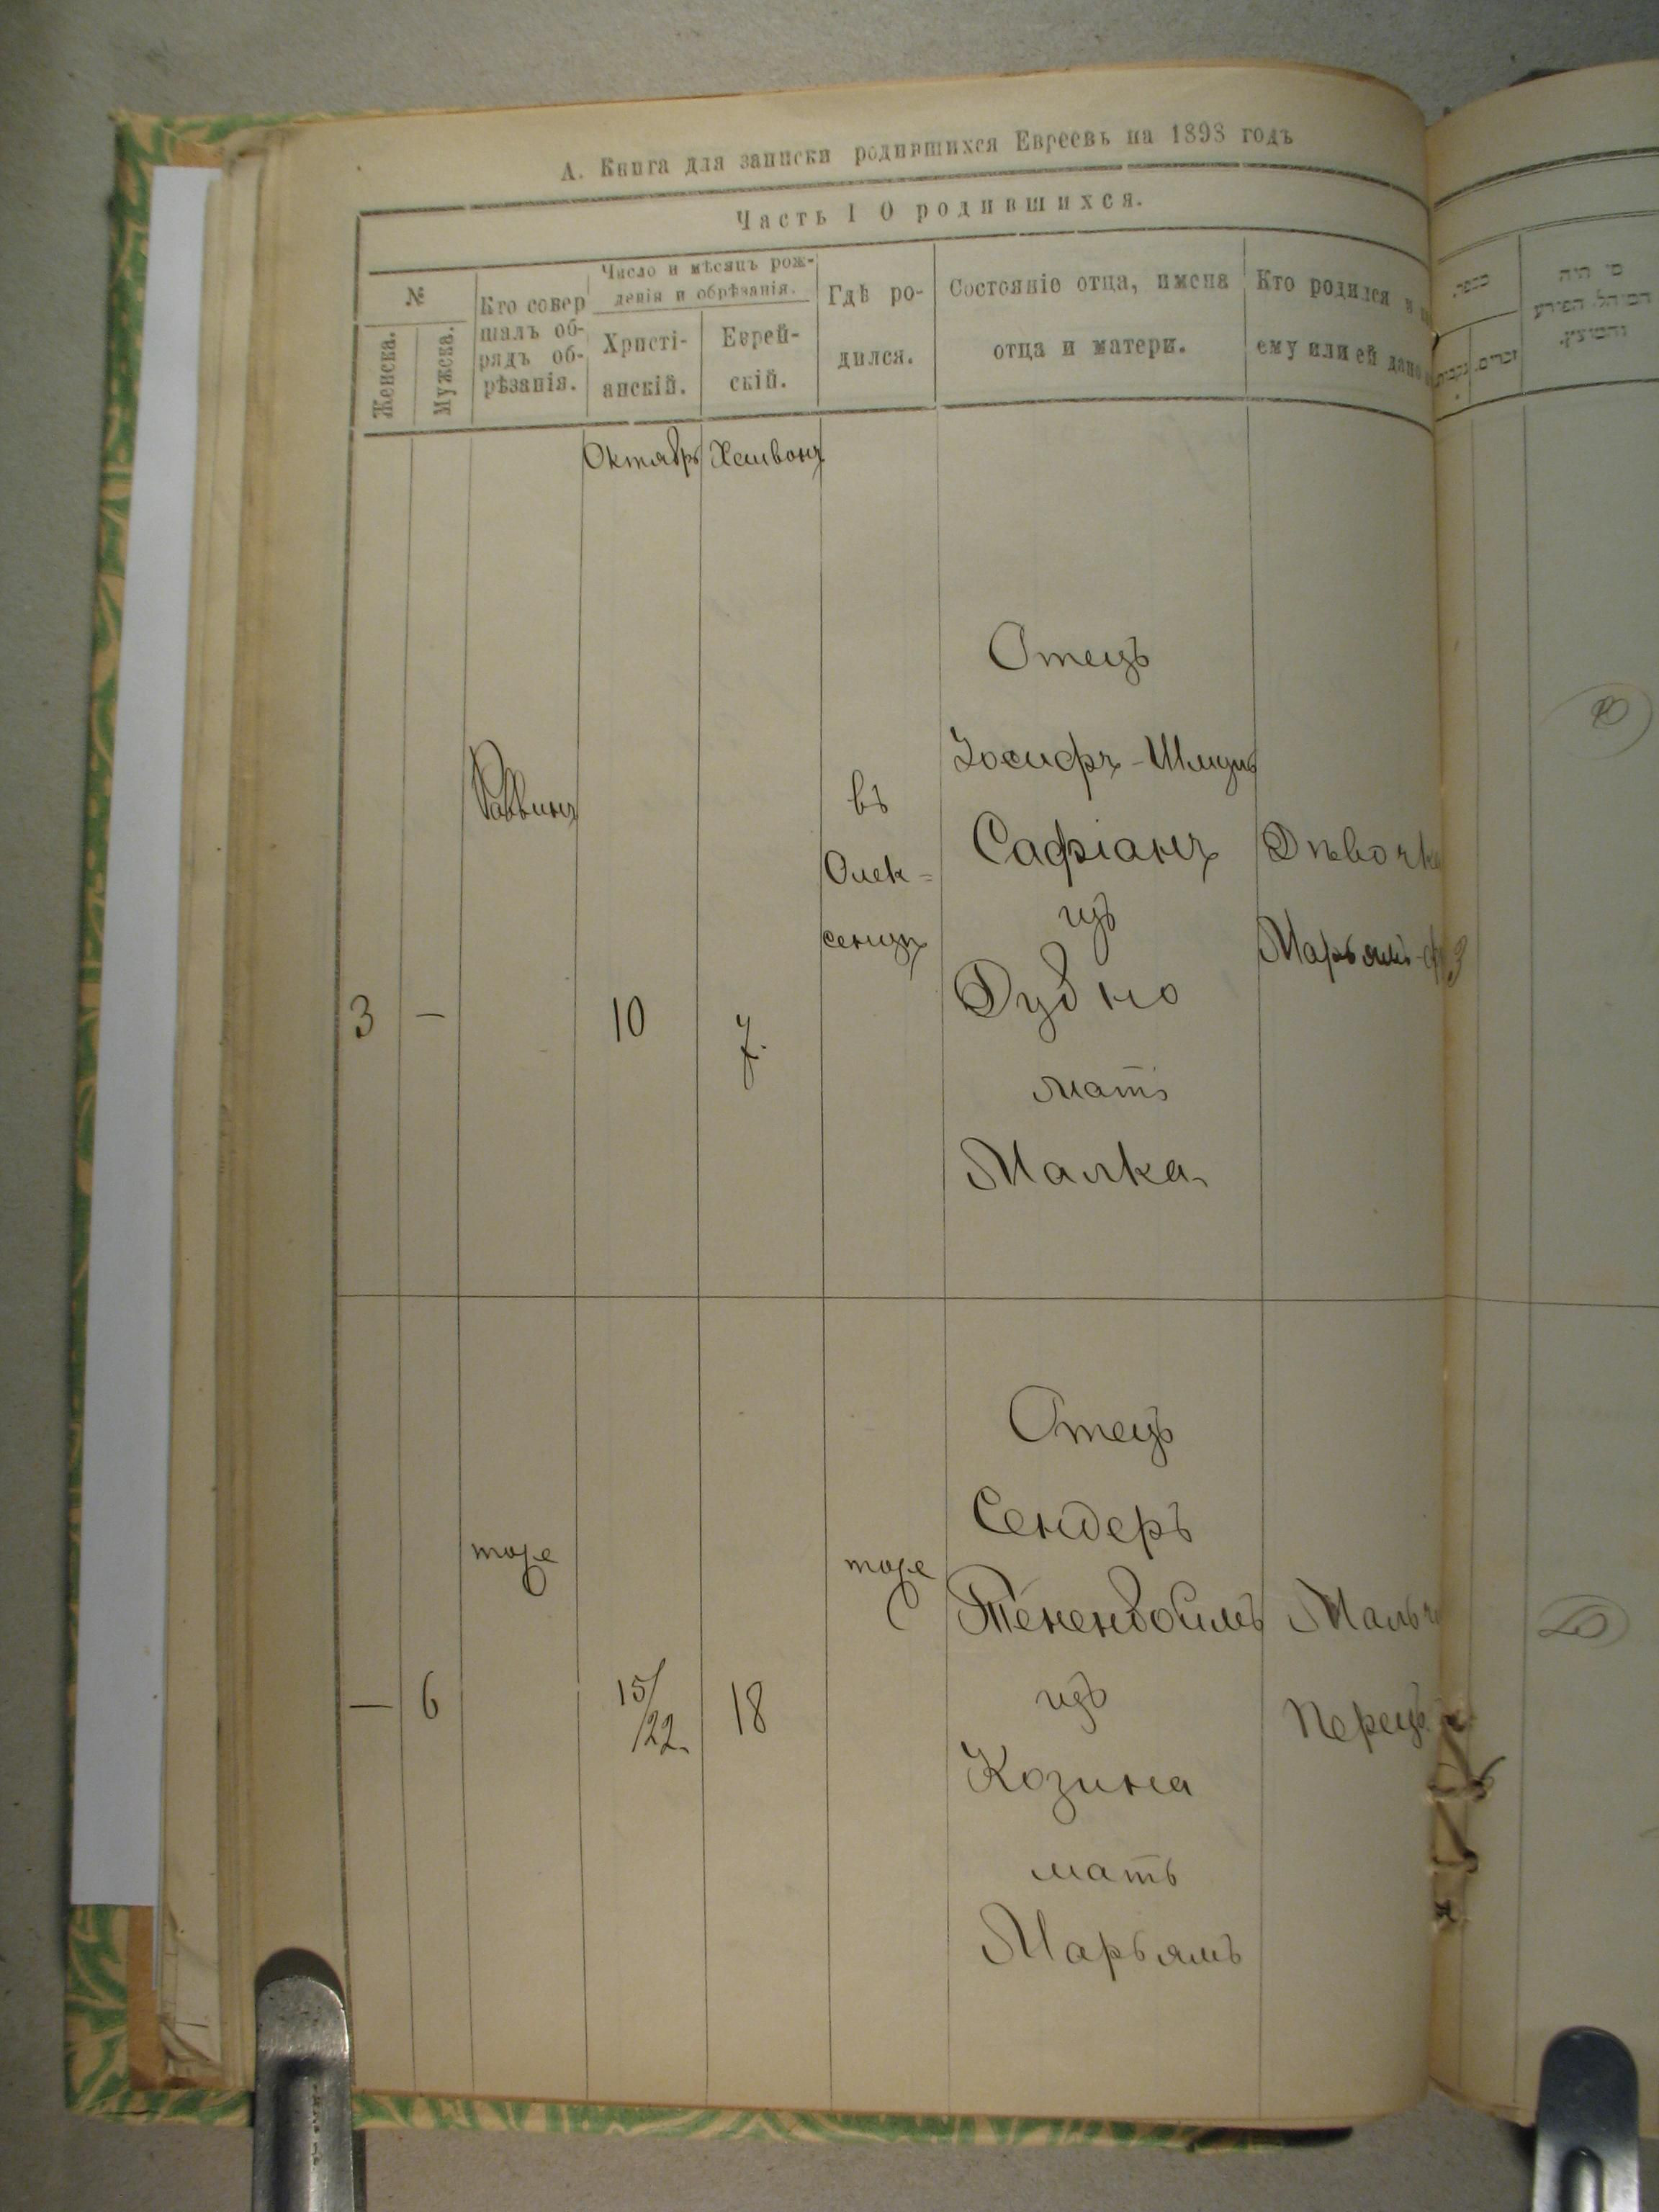 А. Книга для записки родившихся Евреевъ на 1898 годъ
Часть I О родившихся.
№
Женска.
Мужска.
Кто совер
шалъ об-
рядъ об-
рѣзанія.
Число и мѣсяцъ рож-
денія и обрѣзанія.
Христі-
анскій.
Еврей-
скій.
Гдѣ ро-
дился.
Состояніе отца, имена
отца и матери.
Кто родился и
ему или ей дано
מי היה
המוהל הפורע
והמוצץ.
מספר
זכרים.
Октябрь
Хешвонъ
3
—
Раввинъ
10
7.
въ
Олек=
сенцъ
Отецъ
Іосифъ-Шмуль
Сафіанъ
изъ
Дубно
мать
Малка
Дѣвочка
Марьямъ-
—
6
тоже
15/
/22.
18
тоже
Отецъ
Сендеръ
Тененбоимъ
изъ
Козина
мать
Марьямъ
Мальч
Перецъ